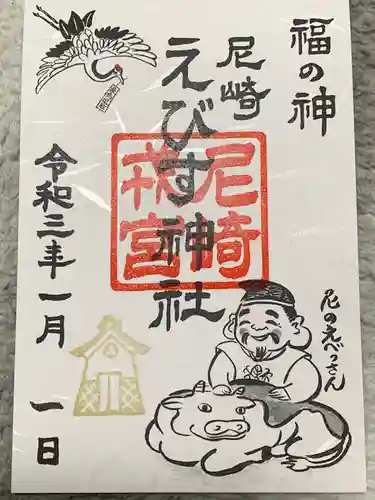 福の神
尼崎
えびす神社
尼崎
戎宮
尼のえべっさん
令和三年一月
一日